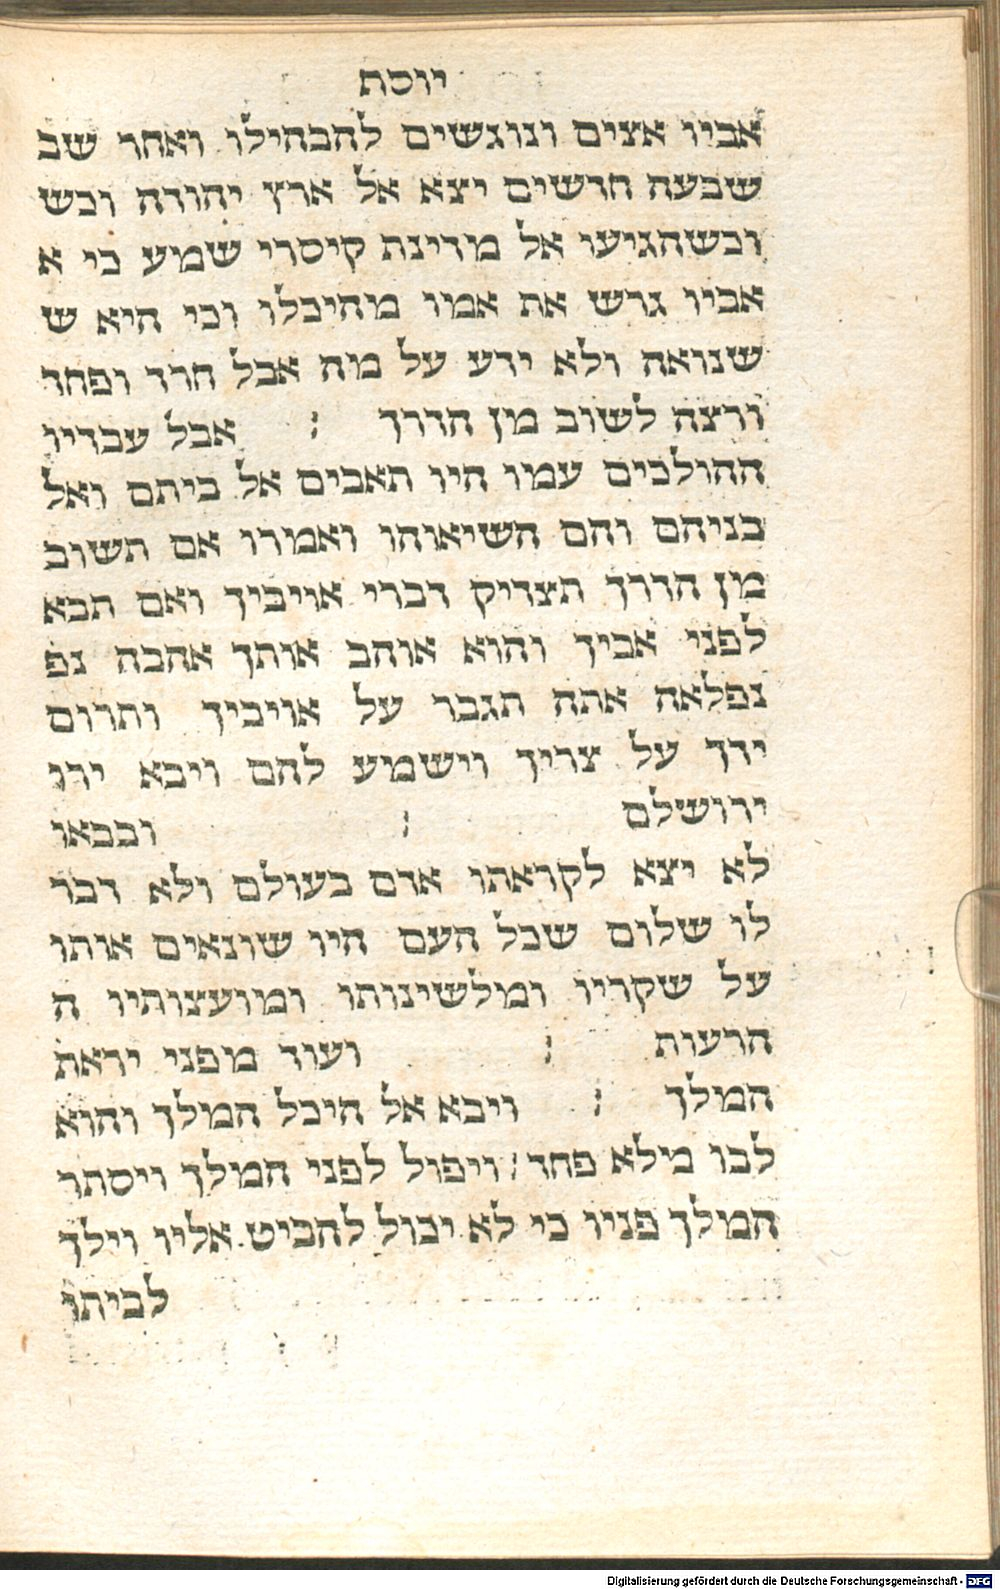 יוסף
אביו אצים ונוגשים להבהילו ואחר שב
שבעה חדשים יצא אל ארץ יהודה וכש
וכשהגיעו אל מדינת קיסרי שמע כי א
אביו גרש את אמו מהיכלו וכי היא ש
שנואה ולא ידע על מה אבל חרד ופחד
ורצה לשוב מן הדרך : אבל עבדיו
ההולכים עמו היו תאבים אל ביתם ואל
בניהם והם השיאוהו ואמרו אם תשוב
מן הדרך תצדיק דברי אויביך ואם תבא
לפני אביך והוא אוהב אותך אהבה נפ
נפלאה אתה תגבר על אויביך ותרום
ידך על צריך וישמע להם ויבא ירו
ירושלם : ובבאו
לא יצא לקראתו אדם בעולם ולא דבר
לו שלום שכל העם היו שונאים אותו
על שקריו ומלשינותו ומועצותיו ה
הרעות : ועוד מפני יראת
המלך : ויבא אל היכל המלך והוא
לבו מילא פחד : ויפול לפני המלך ויסתר
המלך פניו כי לא יכול להביט אליו וילך
לביתו
Digitalisierung gefördert durch die Deutsche Forschungsgemeinschaft - DFG